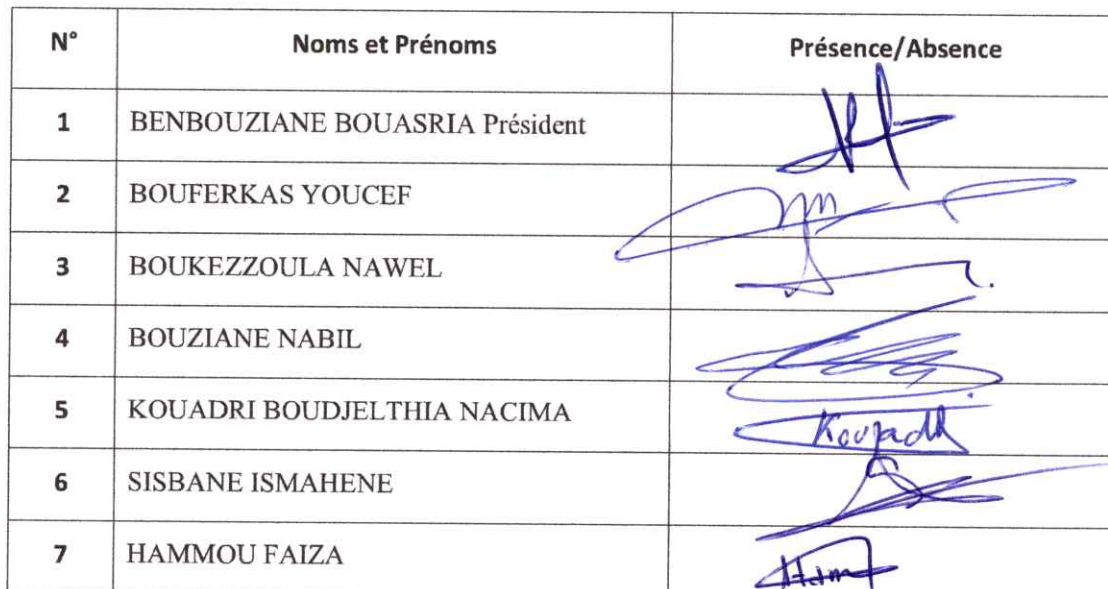 N° Noms et Prénoms Présence/Absence
1 BENBOUZIANE BOUASRIA Président
2 BOUFERKAS YOUCEF
3 BOUKEZZOULA NAWEL
4 BOUZIANE NABIL
5 KOUADRI BOUDJELTHIA NACIMA
6 SISBANE ISMAHENE
7 HAMMOU FAIZA